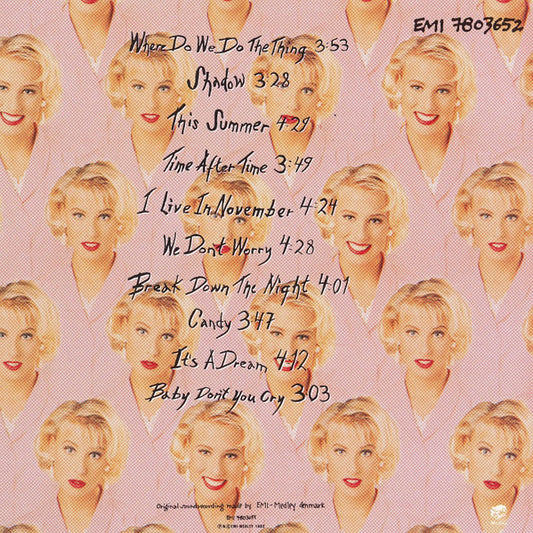 EMI 7803652
Where Do We Do The Thing 3:53
Shadow 3:28
This Summer 4:29
Time After Time 3:49
I Live In November 4:24
We Dont Worry 4:28
Break Down The Night 4:01
Candy 3:47
It's A Dream 4:12
Baby Don't You Cry 3:03
Original soundrecording made by EMI-Medley denmark